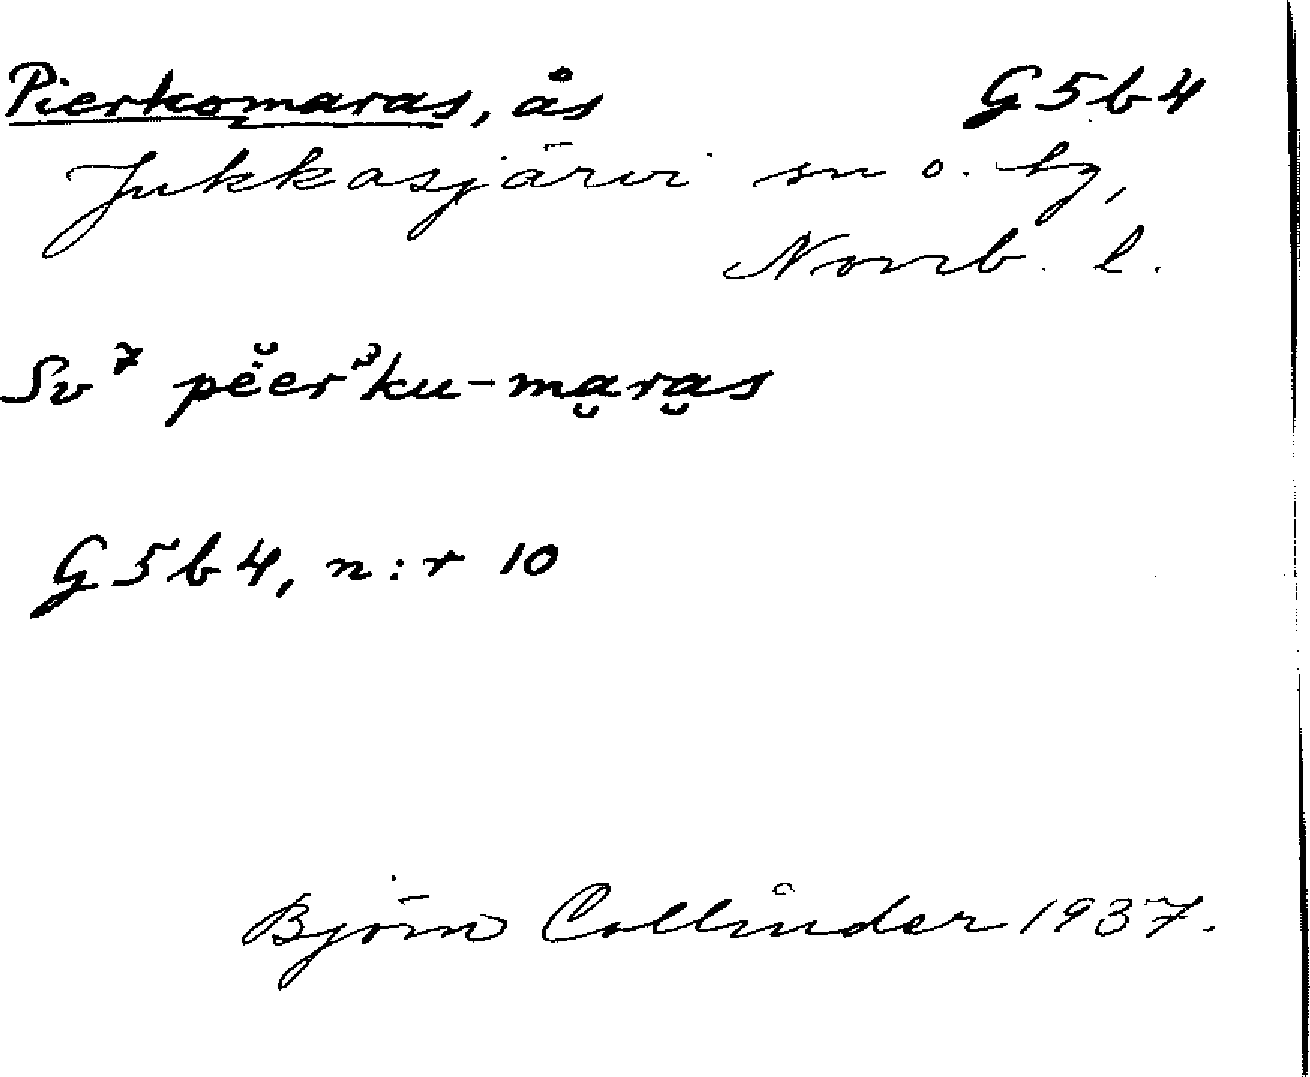 Pierkomaras, ås G5b4
Jukkasjärvi sn o. tg,
Norrb. l.
Sv⁷ pĕer³ku-ma̮ra̮s
G5b4, n:r 10
Björn Collinder 1937.